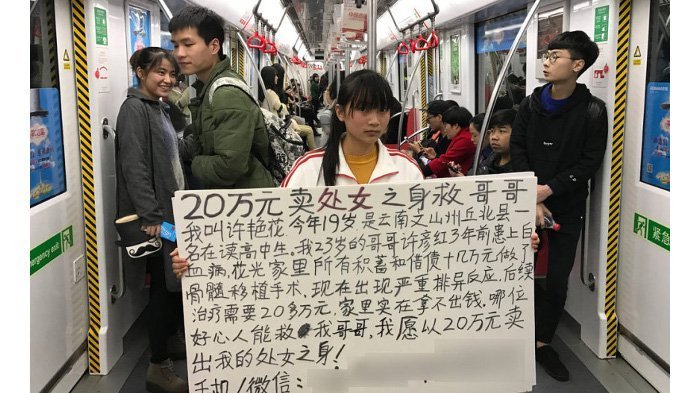 20万元卖处女之身救哥哥
我叫许艳花今年19岁是云南文山州丘北县一
名在读高中生。我23岁的哥哥许彦红3年前患上白
血病,花光家里所有积蓄和借债十几万元做了
骨髓移植手术,现在出现严重排异反应,后续
治疗需要20多万元,家里实在拿不出钱,哪位
好心人能救我哥哥,我愿以20万元卖
出我的处女之身!
手机/微信:
Emergency exit
紧急